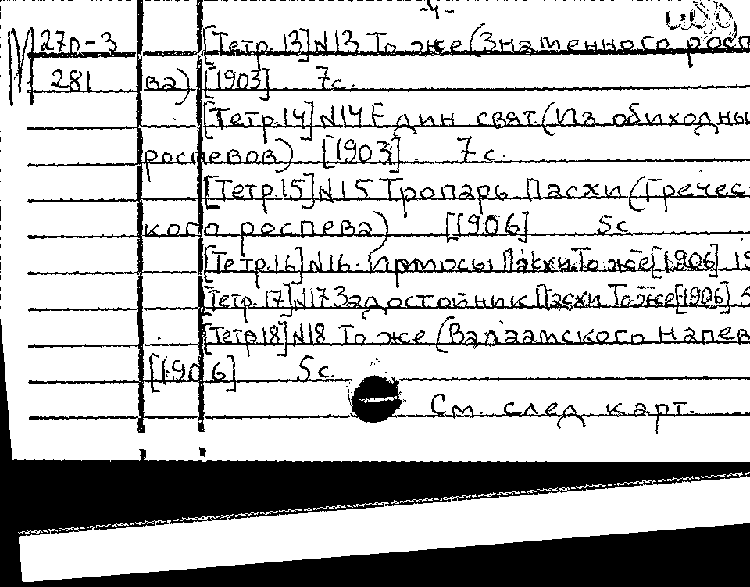 -4-
М 270-3 [Тетр.13] N13 То же (Знаменного росп
281 ва) [1903] 7с.
[Тетр.14] N14 Един свят (Из обиходны
роспевов) [1903] 7с.
[Тетр.15] N15 Тропарь Пасхи (Гречес-
кого роспева) [1906] 5с
[Тетр.16] N16. Ирмосы Пасхи. То же [1906] 19
[Тетр.17] N17 Задостойник Пасхи. То же [1906] 5
[Тетр.18] N18 То же (Валаамского напев
[1906] 5с
См. след карт.